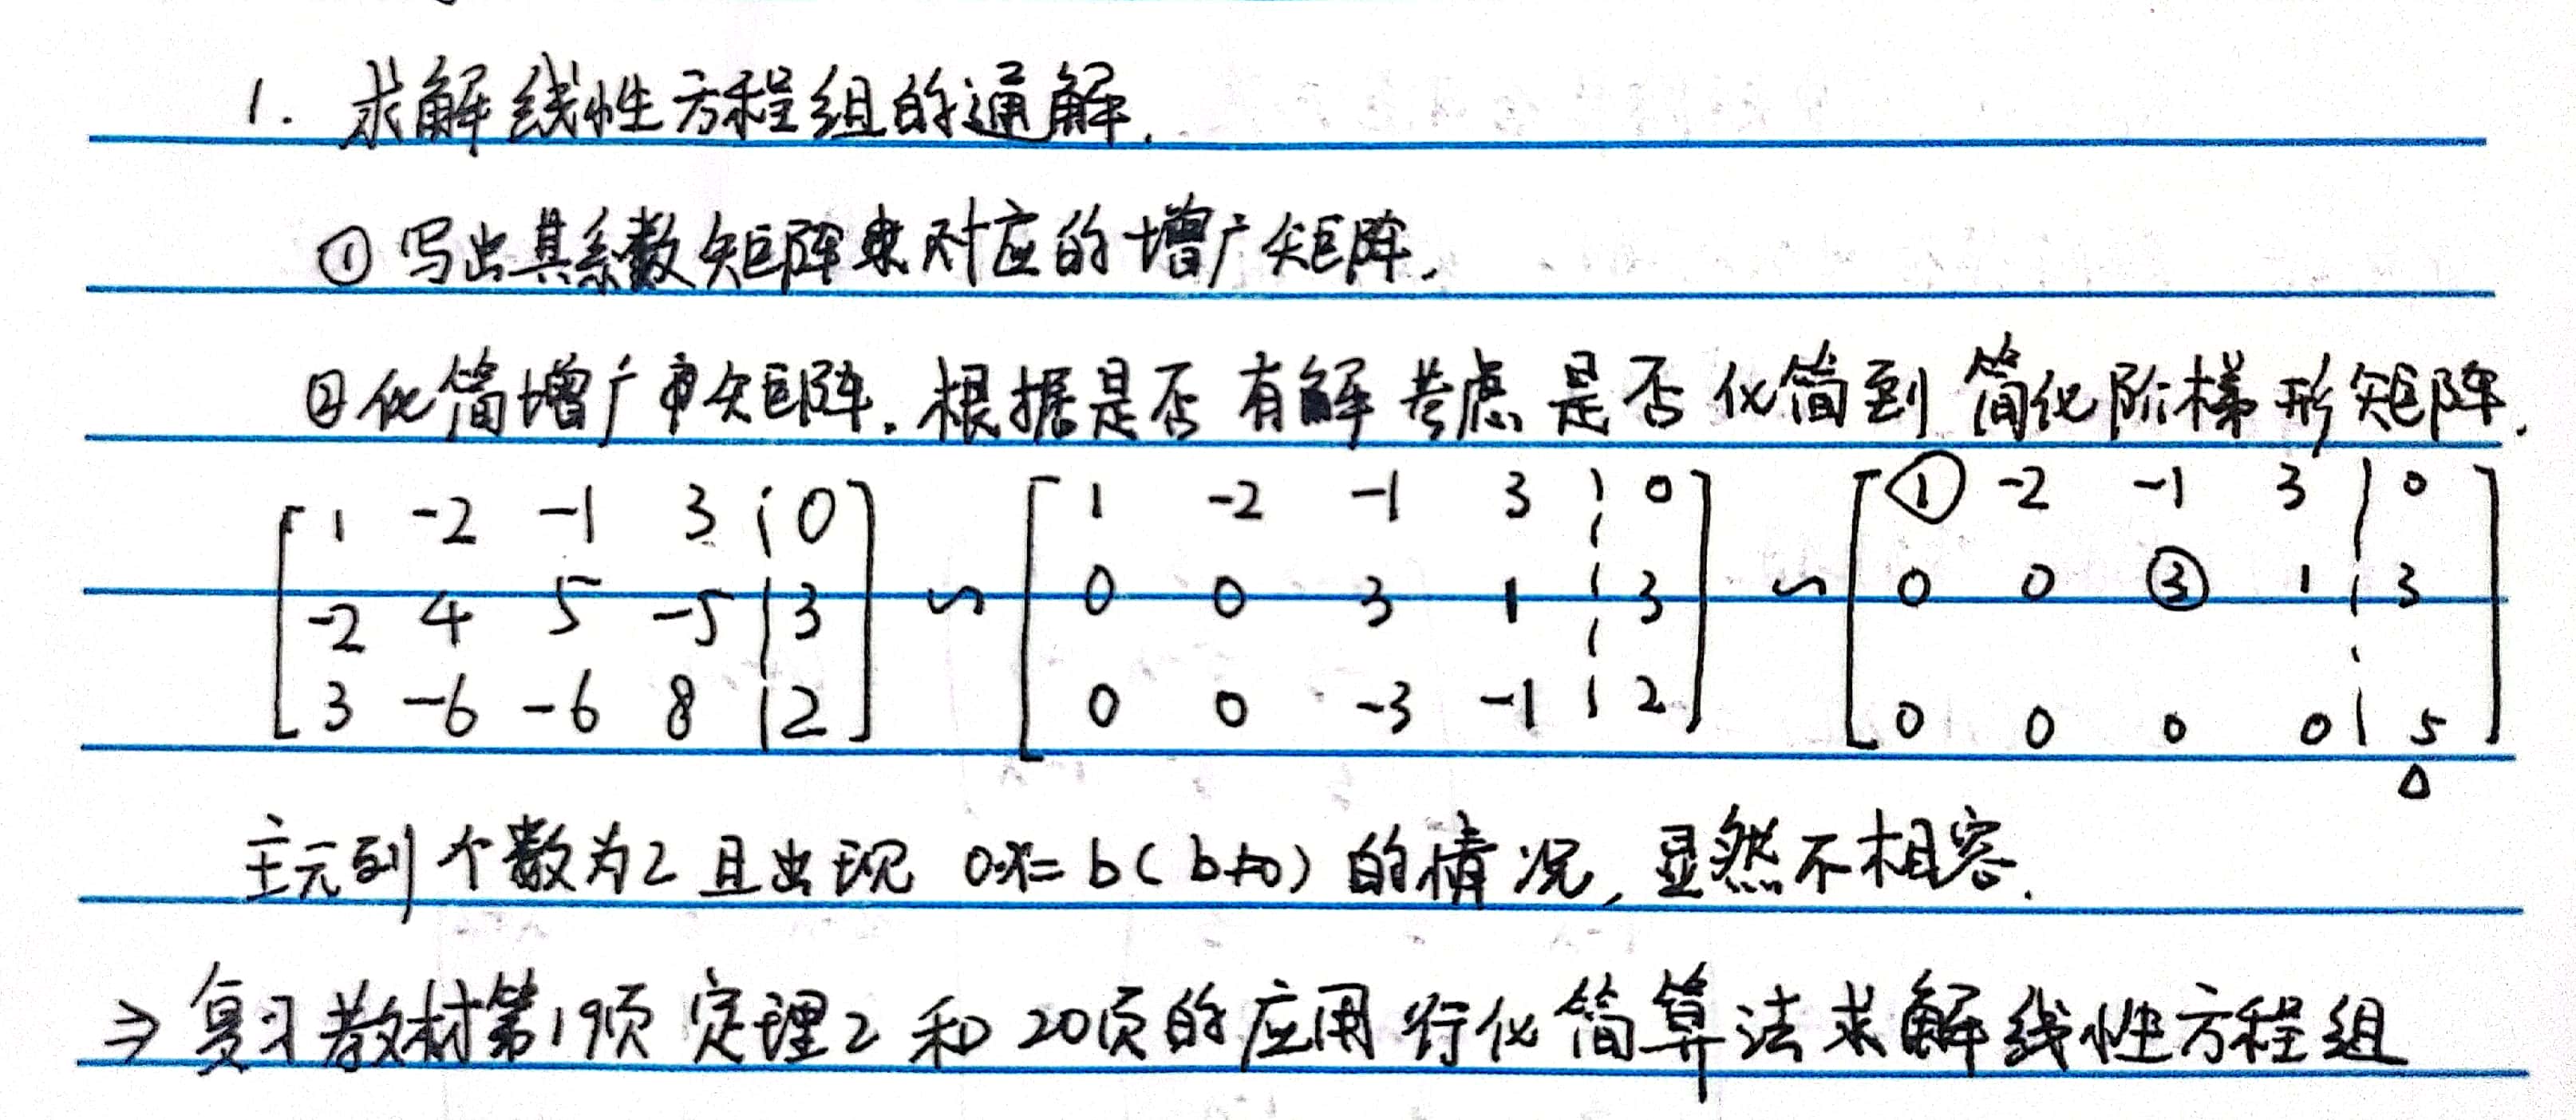 1. 求解线性方程组的通解.
① 写出其系数矩阵来对应的增广矩阵.
② 化简增广矩阵. 根据是否有解考虑是否化简到简化阶梯形矩阵.
[ 1 -2 -1 3 | 0 ] [ 1 -2 -1 3 | 0 ] [ ① -2 -1 3 | 0 ]
[ -2 4 5 -5 | 3 ] ~ [ 0 0 3 1 | 3 ] ~ [ 0 0 ③ 1 | 3 ]
[ 3 -6 -6 8 | 2 ] [ 0 0 -3 -1 | 2 ] [ 0 0 0 0 | 5 ]
△
主元列个数为2 且出现 0·x=b(b≠0)的情况, 显然不相容.
⇒ 复习教材第19页 定理2 和 20页的应用行化简算法求解线性方程组